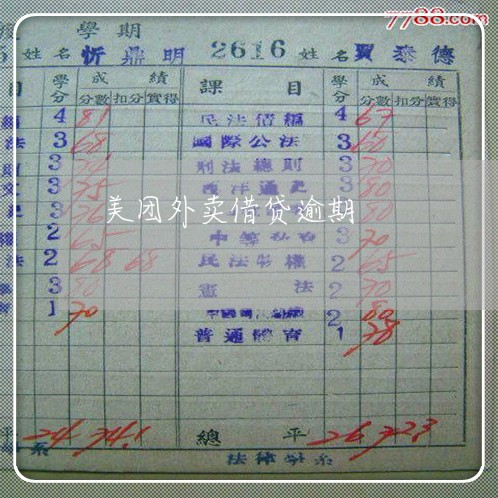 7788.com
學期
姓名 忻鼎明 2616 姓名 賈泰德
目 學分 成績 課目 學分 成績
分數 扣分 實得 分數 扣分 實得
4 81 民法債編 4 67
法 3 68 國際公法 3 60
3 刑法總則 3 70
3 75 西洋通史 3 80
3 3 80
美团外卖借贷逾期
2 65 3 70
法 2 68 68 民法物權 2 65
3 80 憲法 2 70
1 70 2 80
普通體育 1 78
平 24 74.1 總平 26 72.3
系 法律學系